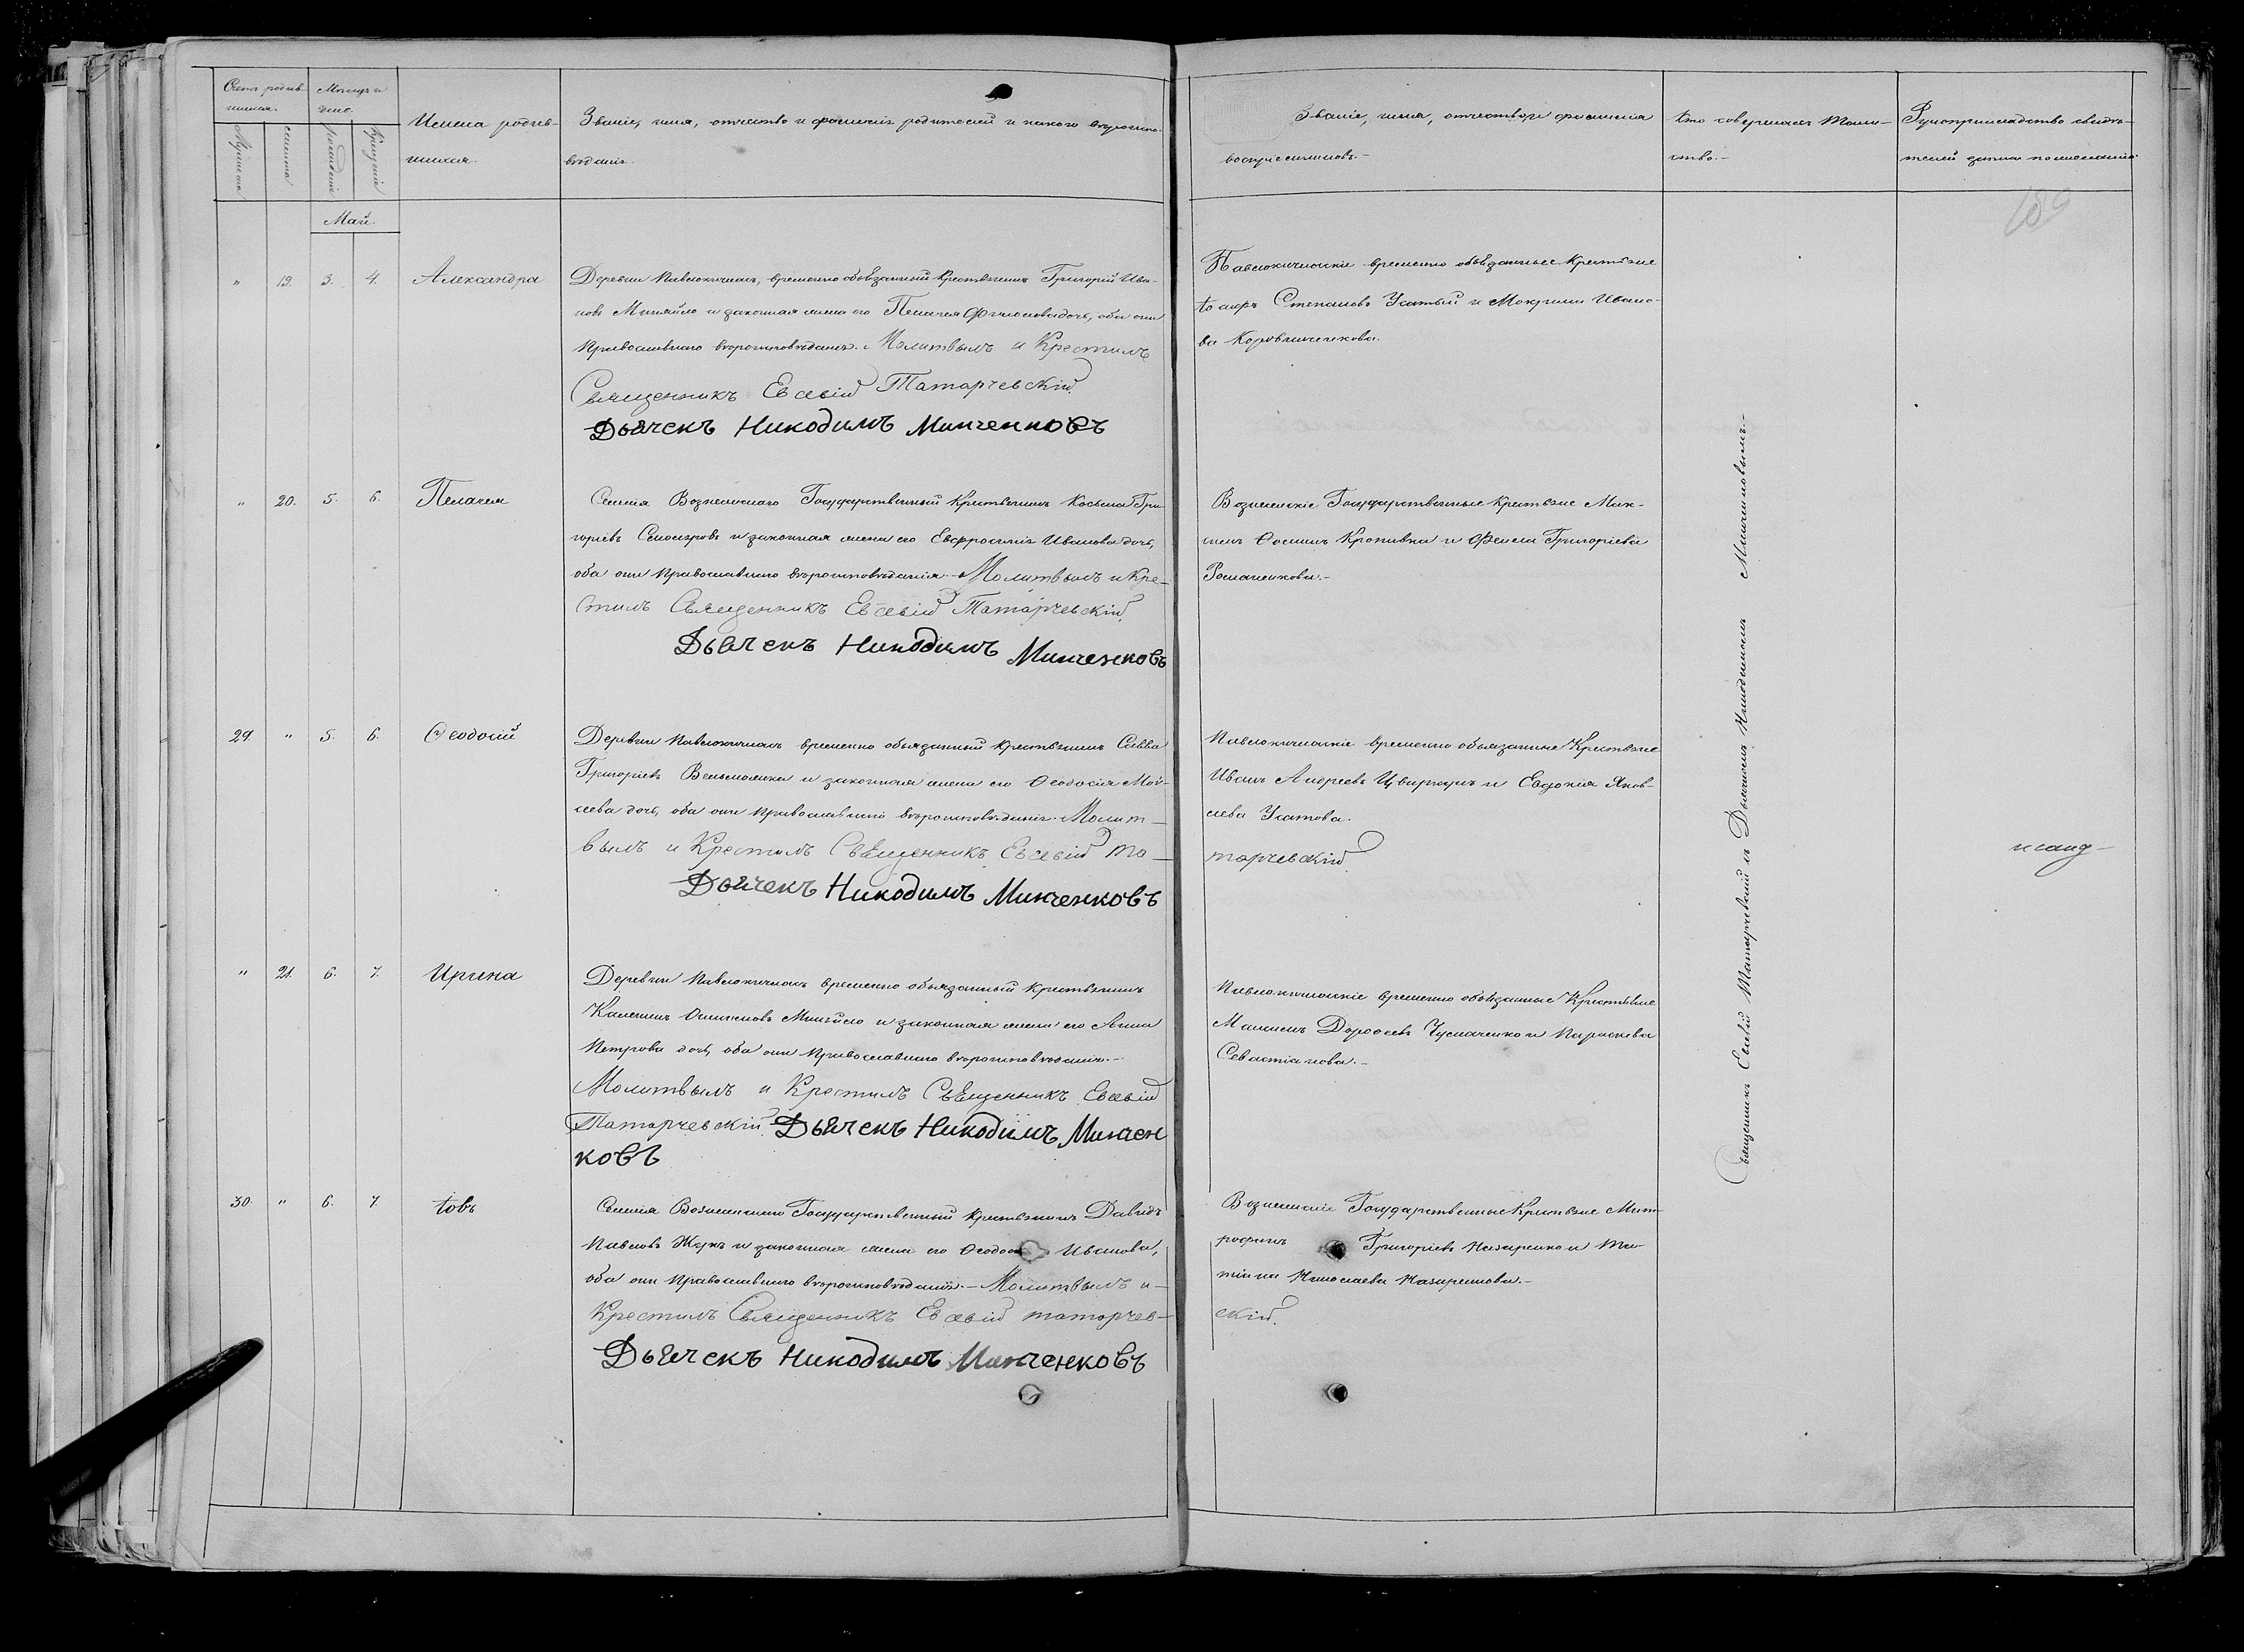 Счетъ родив-
шихся.
Мѣсяцъ и
число.
Мужеска
женска
рожденія
крещенія
Имена родив-
шихся.
Званіе, имя, отчество и фамилія родителей и какого вѣроиспо-
вѣданія.
Званіе, имя, отчество и фамилія
воспріемниковъ.-
Кто совершалъ Таин-
ство.-
Рукоприкладство свидѣ-
телей записи по желанію
Май.
" 19. 3. 4. Александра
Деревни Павлокичкасъ, временно обязанный Крестьянинъ Григорій Ива-
новъ Миняйло и законная жена его Пелагея дочь, оба они
Православнаго вѣроисповѣданія. Молитвылъ и Крестилъ
Священникъ Евсевій Татарчевскій.
Дьячекъ Никодимъ Минченковъ
Павлокичкаскіе временно обязанные Крестьяне
Степановъ Усатый и Мокрина Ивано-
ва
" 20. 5. 6. Пелагея
Селенія Вознесенскаго Государственный Крестьянинъ Косьма Гри-
горьевъ и законная жена его Евфросинія Иванова дочь,
оба они Православнаго вѣроисповѣданія. Молитвылъ и Кре-
стилъ Священникъ Евсевій Татарчевскій.
Дьячекъ Никодимъ Минченковъ
Вознесенскіе Государственные Крестьяне Мак-
симъ Ѳоминъ Кропивка и Григоріева
Романенкова.-
29. " 5. 6. Ѳеодосій
Деревни Павлокичкасъ временно обязанный крестьянинъ Савва
Григорьевъ и законная жена его Ѳеодосія Мой-
сеева дочь, оба они Православнаго вѣроисповѣданія. Молит-
вылъ и Крестилъ Священникъ Евсевій та-
Дьячекъ Никодимъ Минченковъ
Павлокичкаскіе временно обязанные Крестьяне
Иванъ Андреевъ Цвиркунъ и Евдокія Яков-
лева Усатова.
тарчевскій.
" 21. 6. 7. Ирина
Деревни Павлокичкасъ временно обязанный Крестьянинъ
Миняйло и законная жена его Анна
Петрова дочь, оба они Православнаго вѣроисповѣданія.-
Молитвылъ и Крестилъ Священникъ Евсевій
Татарчевскій. Дьячекъ Никодимъ Минчен
ковъ
Павлокичкаскіе временно обязанные Крестьяне
Максимъ Дороѳеевъ Чумаченко и Параскева
Севастіанова.-
30. " 6. 7. Іовъ
Селенія Вознесенскаго Государственный Крестьянинъ Давидъ
Павловъ Жукъ и законная жена его Иванова,
оба они Православнаго вѣроисповѣданія.- Молитвылъ и-
Крестилъ Священникъ Евсевій татарчев-
Дьячекъ Никодимъ Минченковъ
Вознесенскіе Государственные Крестьяне Мит-
рофанъ Григоріевъ Назаренко и Та-
тіана Николаева Назаренкова.-
скій.
Священникъ Евсевій Татарчевскій съ Дьячкомъ Никодимомъ Минченковымъ.-